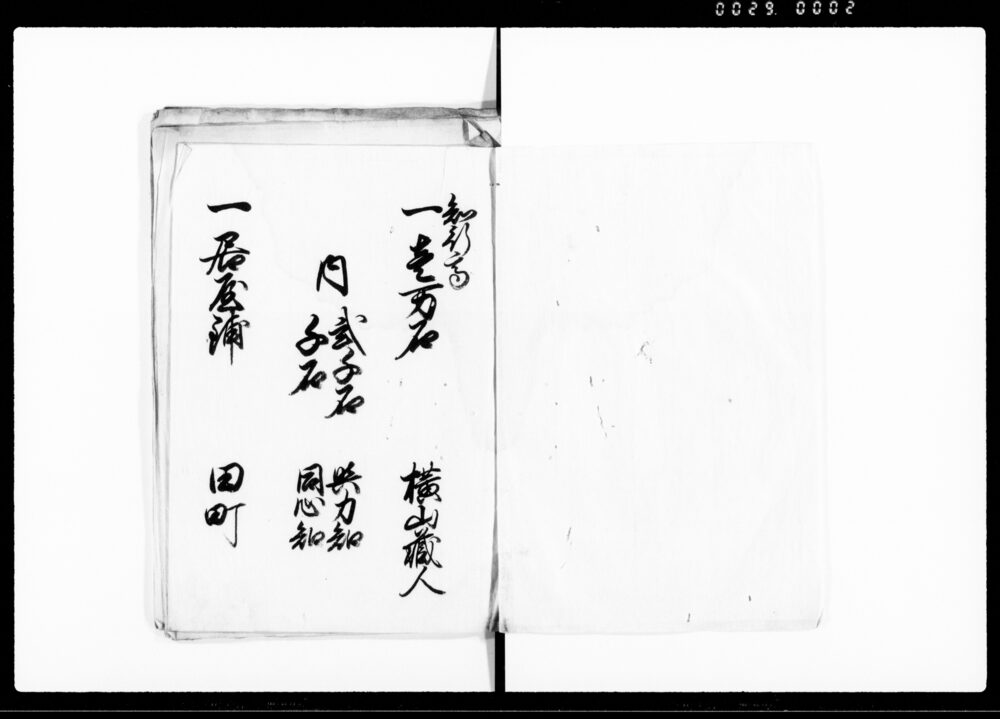 0029. 0002
知行高
一壱万石 横山蔵人
内 弐千石 與力知
千石 同心知
一居屋鋪 田町